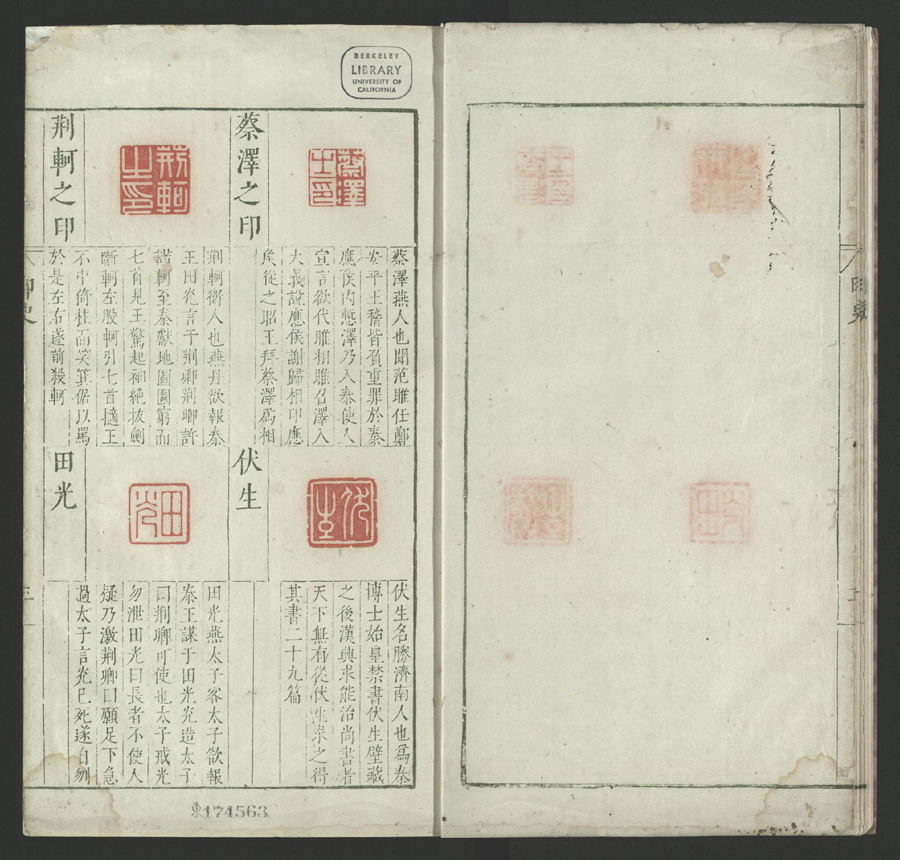 BERKELEY
LIBRARY
UNIVERSITY OF
CALIFORNIA
蔡澤之印
蔡澤之印
蔡澤燕人也聞范雎任鄭
安平王稽皆負重罪於秦
應侯内慙澤乃入秦使人
宣言欲代雎相雎召澤入
大義說應侯謝歸相印應
矦從之昭王拜蔡澤爲相
荆軻之印
荆軻之印
荆軻衛人也燕丹欲報秦
王田光言于荆卿荆卿許
諾軻至秦獻地圖圖窮而
七首見王驚起袖絶拔劍
斷軻左股軻引七首擿王
不中倚柱而笑箕倨以罵
於是左右遂前殺軻
伏生
伏生
伏生名勝濟南人也爲秦
博士始皇禁書伏生壁藏
之後漢興求能治尚書者
天下無有從伏生求之得
其書二十九篇
田光
田光
田光燕太子客太子欲報
秦王謀于田光光造太子
曰荆卿可使也太子戒光
勿泄田光曰長者不使人
疑乃激荆卿曰願足下急
過太子言光已死遂自刎
印史
三
東174563